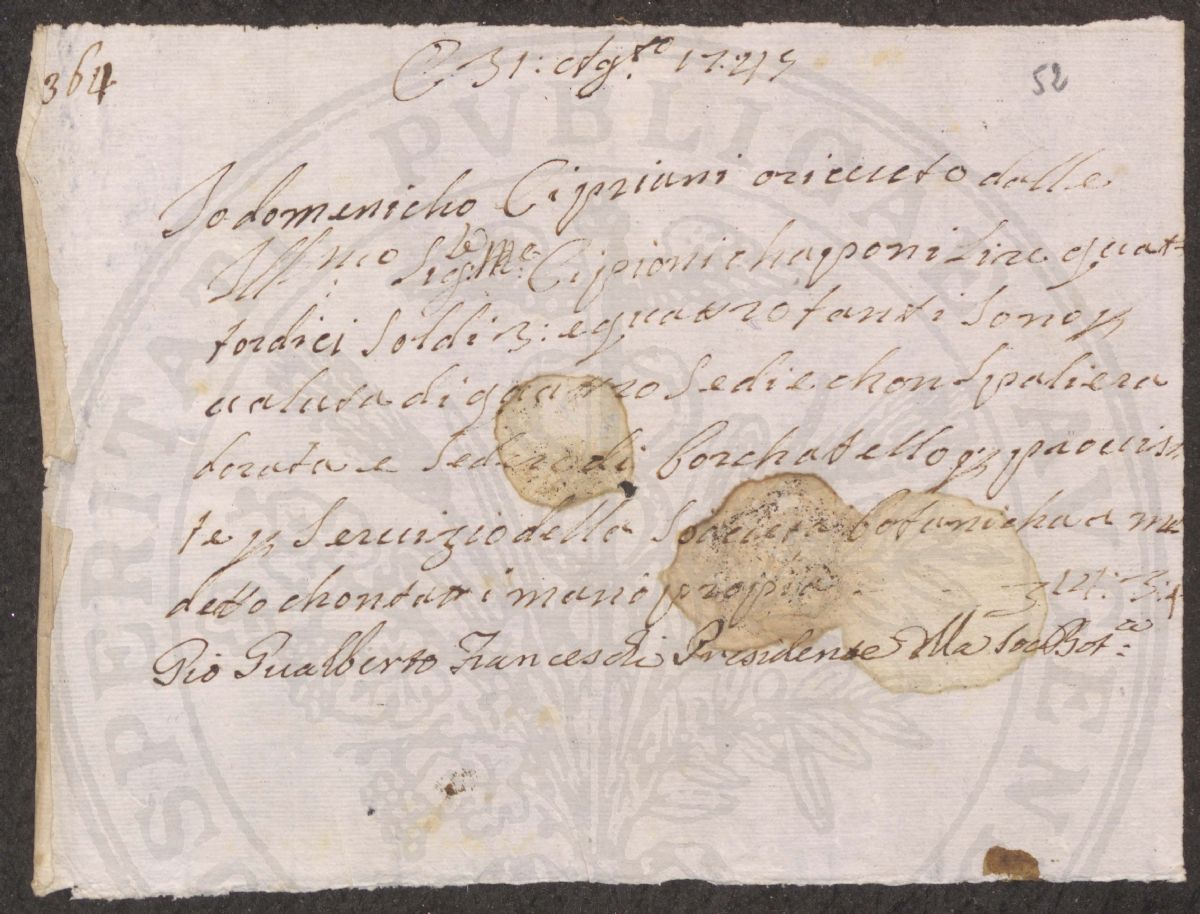 364
A 31: Ag.to 1745
52
Io domenicho Cipriani o riceuto dalle
Ill:mo Sig:re Cipioni chaponi Lire quat
tordici soldi 3: e quattro tanti sono p
ualuta di quattro sedie chon spaliera
dorata e sedere di borchatello p prouis
te p seruizio della Societa botanicha a me
detto chontatti mano propia - - - 3 14: 3: 4
Gio Gualberto Franceschi Presidente della Soc Bot:ca
PVBLICAE
SPERITATI